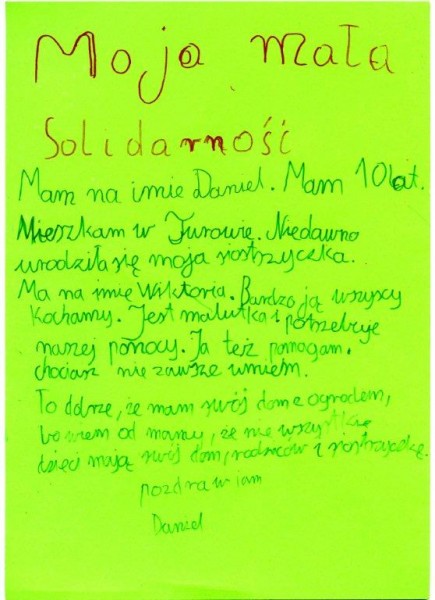 Moja mała
Solidarność
Mam na imie Daniel. Mam 10 lat.
Mieszkam w Turowie. Niedawno
urodziła się moja siostrzyczka.
Ma na imię Wiktoria. Bardzo ją wszyscy
kochamy. Jest malutka i potrzebuje
naszej pomocy. Ja też pomagam,
chociasz nie zawsze umiem.
To dobrze, że mam swój dom z ogrodem,
bo wiem od mamy, że nie wszystkie
dzieci mają swój dom, rodziców i siostrzyczkę.
pozdrawiam
Daniel